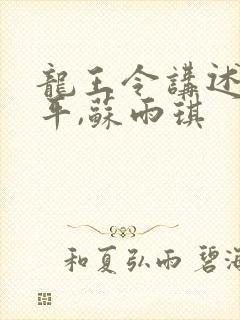 龍王令講述
年,蘇雨琪
和夏弘雨 碧海